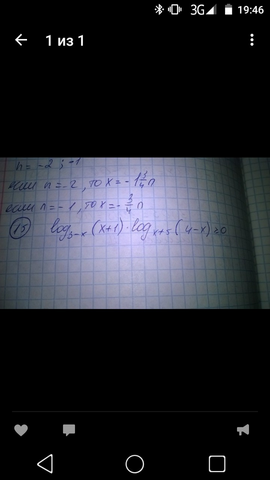 3G 19:46
1 из 1
n = -2 ; -1
если n = -2, то x = -1 3/4 π
если n = -1, то x = - 3/4 π
(15) log₃₋ₓ (x+1) · logₓ₊₅ (4-x) ≥ 0